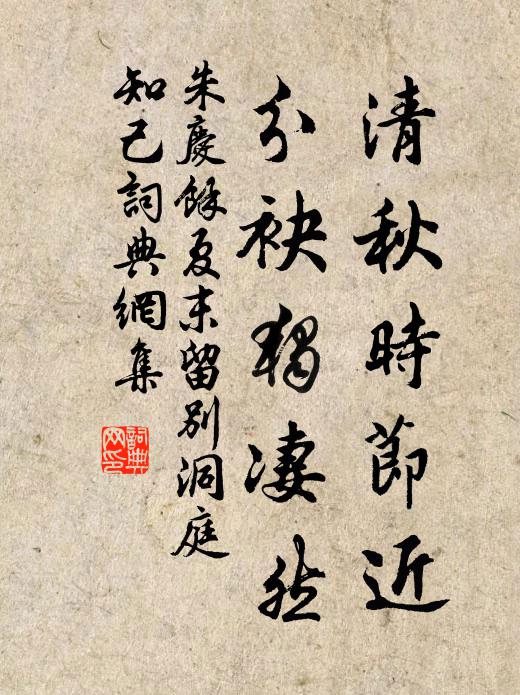 清秋時節近
分袂獨淒然
朱慶餘夏末留別洞庭
知己詞典網集
詞典
网印